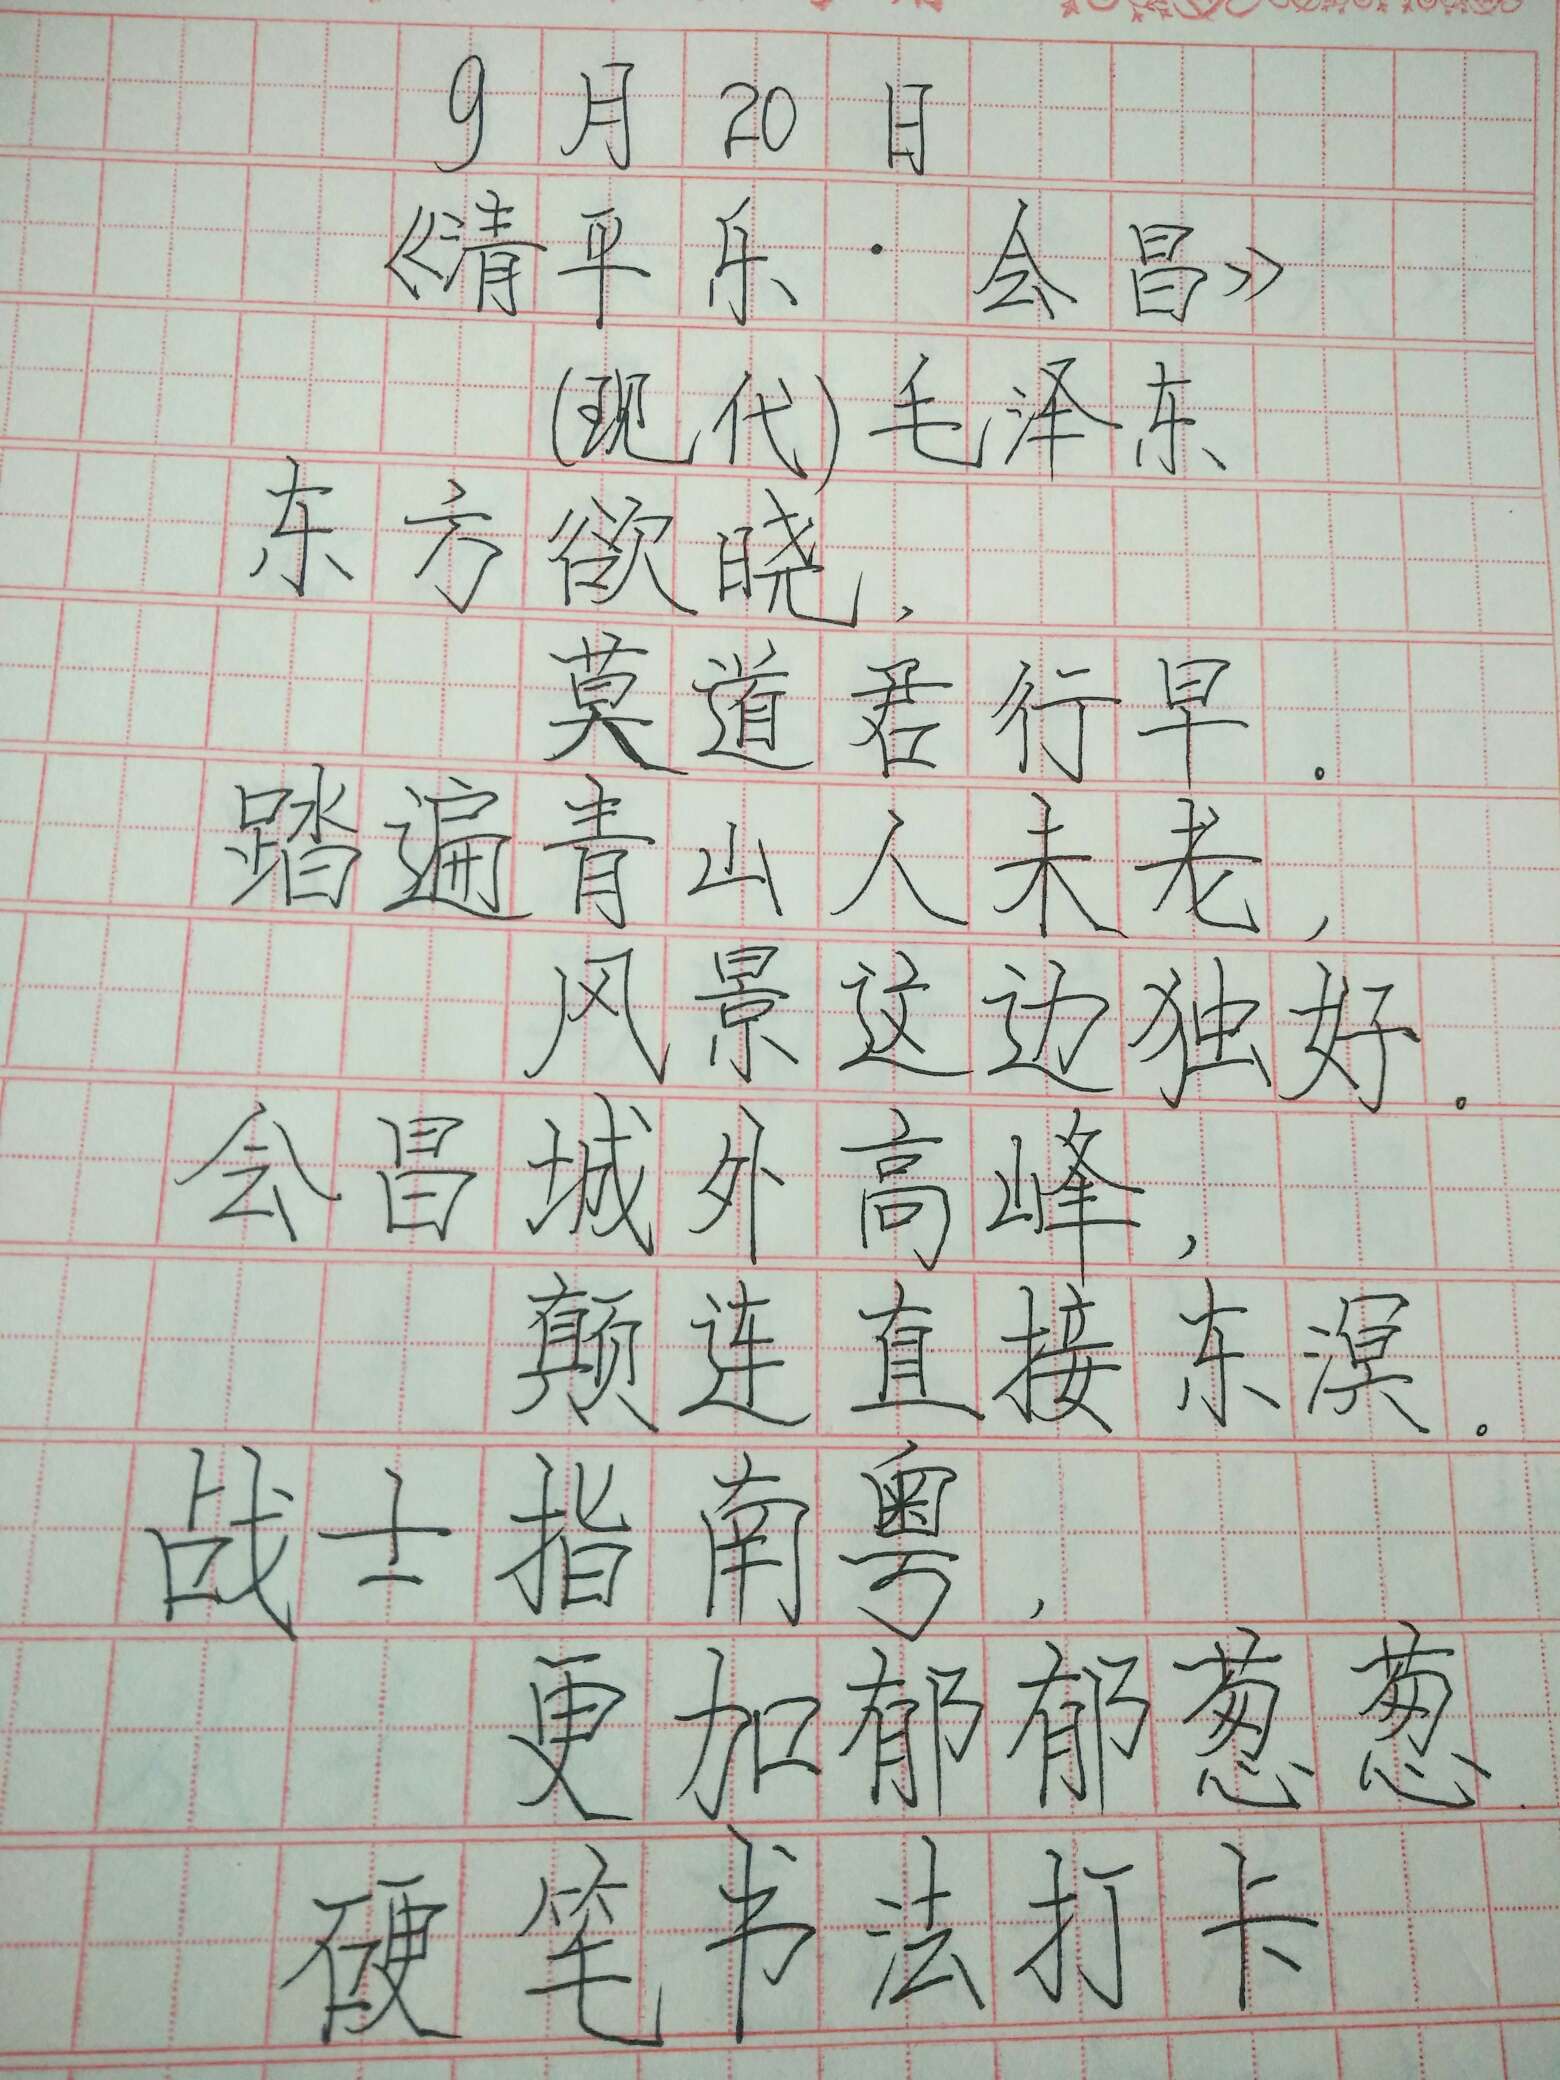 9月20日
《清平乐·会昌》
(现代)毛泽东
东方欲晓,
莫道君行早.
踏遍青山人未老,
风景这边独好.
会昌城外高峰,
颠连直接东溟。
战士指南粤,
更加郁郁葱葱
硬笔书法打卡